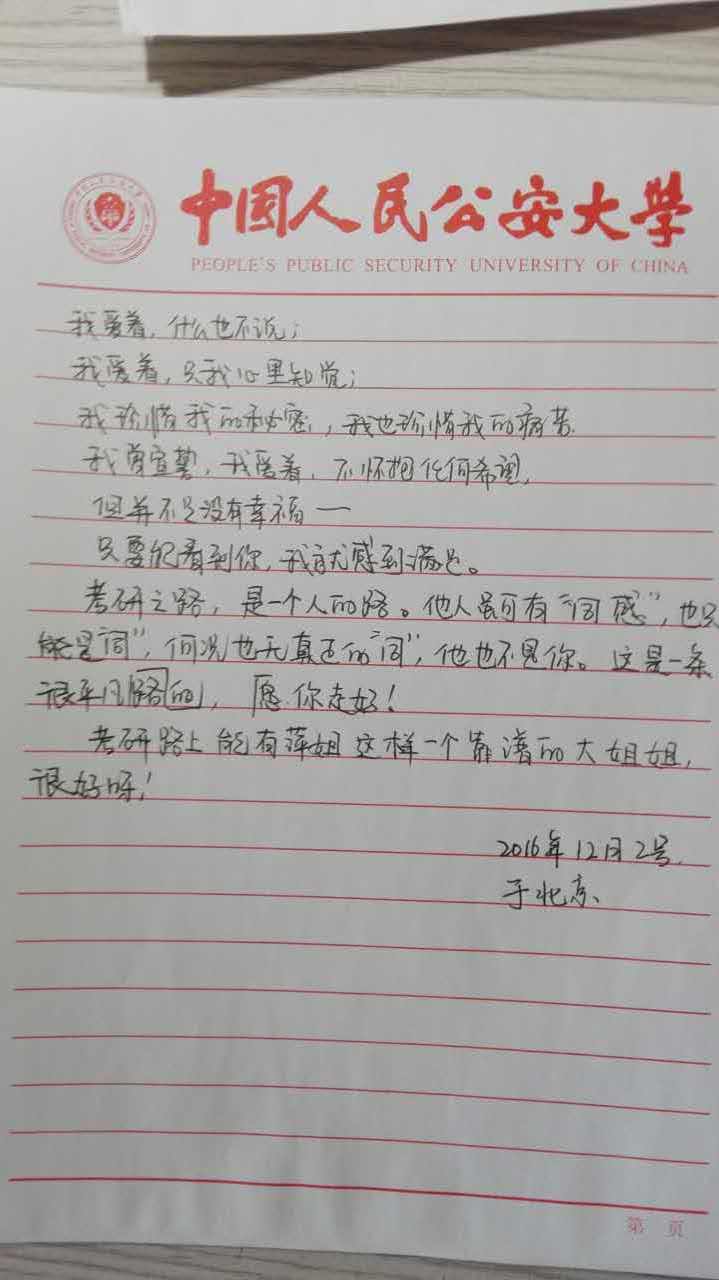 中国人民公安大学
PEOPLE'S PUBLIC SECURITY UNIVERSITY OF CHINA
我爱着，什么也不说；
我爱着，只我心里知觉；
我珍惜我的秘密，我也珍惜我的痛苦.
我曾宣誓，我爱着，不怀抱任何希望，
但并不是没有幸福——
只要能看到你，我就感到满足。
考研之路，是一个人的路。他人虽可有“同感”，也只
能是“同”，何况也无真正的“同”，他也不是你。这是一条
很平凡路的，愿你走好！
考研路上能有萍姐这样一个靠谱的大姐姐，
很好呀！
2016年12月2号.
于北京、
第 页